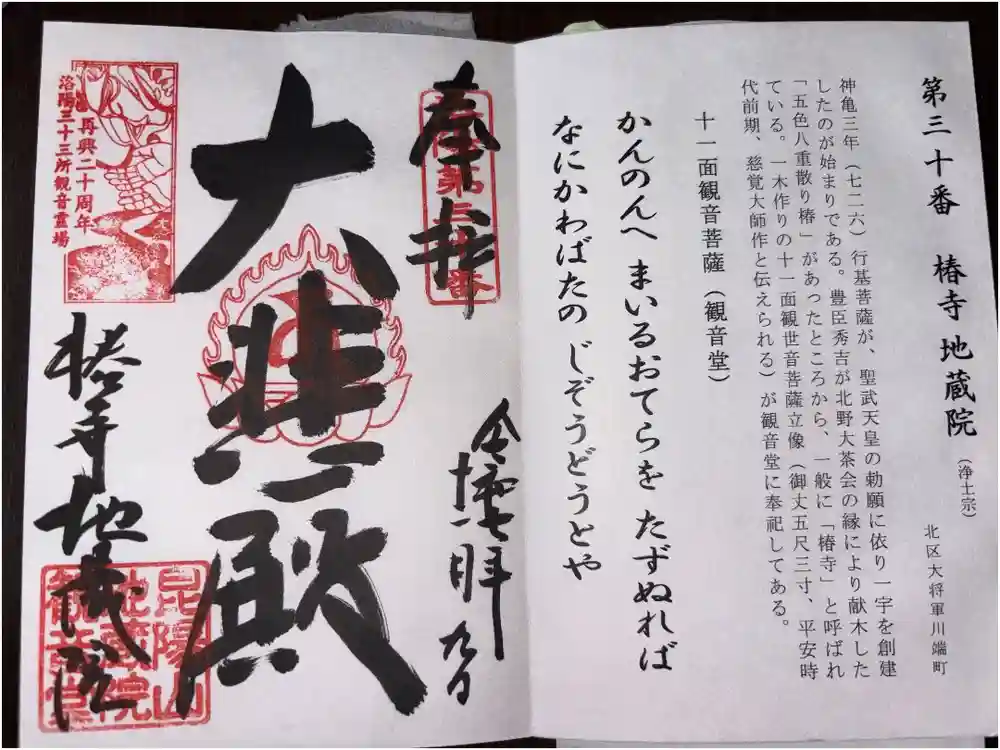 第三十番　椿寺 地蔵院
(浄土宗)
北区大将軍川端町
神亀三年（七二六）行基菩薩が、聖武天皇の勅願に依り一宇を創建
したのが始まりである。豊臣秀吉が北野大茶会の縁により献木した
「五色八重散り椿」があったところから、一般に「椿寺」と呼ばれ
ている。一木作りの十一面観世音菩薩立像（御丈五尺三寸、平安時
代前期、慈覚大師作と伝えられる）が観音堂に奉祀してある。
十一面観音菩薩（観音堂）
かんのんへ まいるおてらを たずぬれば
なにかわばたの じぞうどうとや
奉拝
第三十番
大悲殿
椿寺地蔵院
再興二十周年
洛陽三十三所観音霊場
昆陽山
地蔵院
観音堂